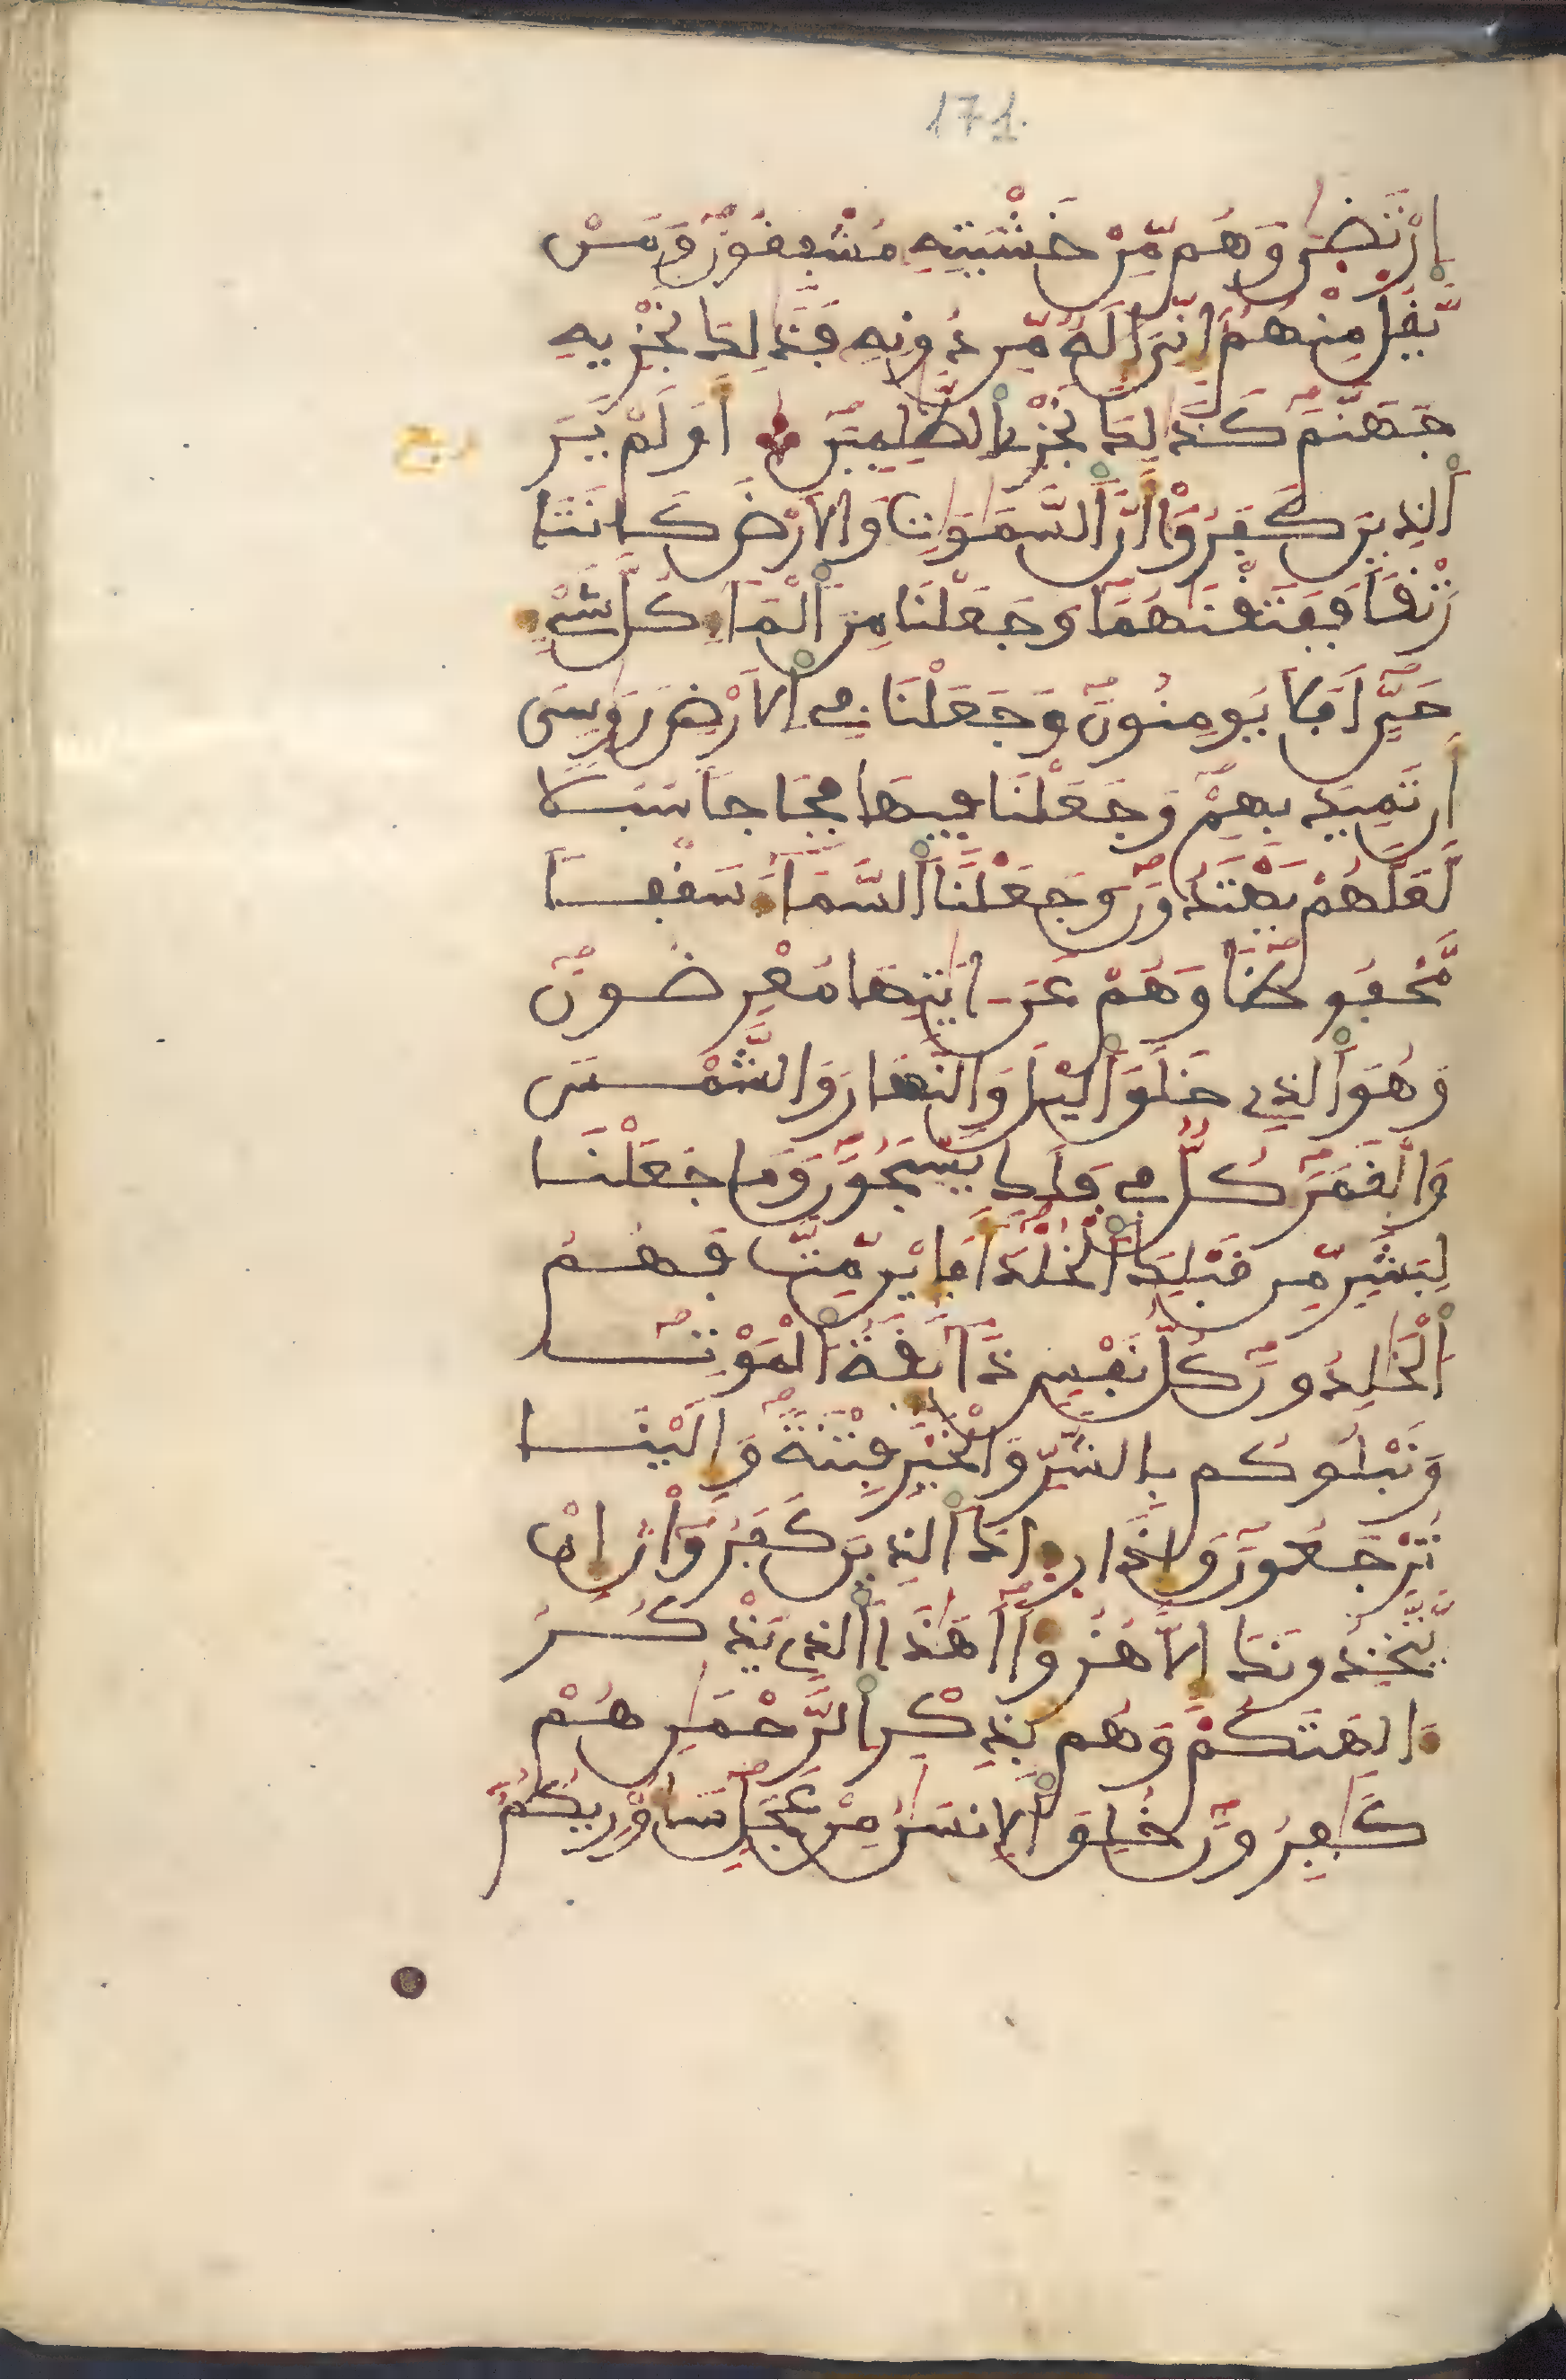 171
اِرْتَضَىٰ وَهُم مِّنْ خَشْيَتِهِ مُشْفِقُونَ وَمَنْ
يَّقُلْ مِنْهُمُ إِنِّيَ إِلَٰهٌ مِّن دُونِهِ فَذَٰلِكَ نَجْزِيهِ
جَهَنَّمَ كَذَٰلِكَ نَجْزِي الظَّٰلِمِينَ أَوَلَمْ يَرَ
اَلذِينَ كَفَرُوٓاْ أَنَّ اَلسَّمَٰوَٰتِ وَالَارْضَ كَانَتَا
رَتْقاً فَفَتَقْنَٰهُمَا وَجَعَلْنَا مِنَ اَلْمَآءِ كُلَّ شَيْءٍ
حَيٍّ اَفَلَا يُومِنُونَ وَجَعَلْنَا فِي اِلَارْضِ رَوَٰسِيَ
أَن تَمِيدَ بِهِمْ وَجَعَلْنَا فِيهَا فِجَاجاً سُبُلاً
لَّعَلَّهُمْ يَهْتَدُونَ وَجَعَلْنَا اَلسَّمَآءَ سَقْفاً
مَّحْفُوظاً وَهُمْ عَنَ اٰيَٰتِهَا مُعْرِضُونَ
وَهُوَ اَلذِي خَلَقَ اَليْلَ وَالنَّهَارَ وَالشَّمْسَ
وَالْقَمَرَ كُلٌّ فِي فَلَكٍ يَسْبَحُونَ وَمَا جَعَلْنَا
لِبَشَرٍ مِّن قَبْلِكَ اَلْخُلْدَ أَفَإِيْن مِّتَّ فَهُمُ
اُلْخَٰلِدُونَ كُلُّ نَفْسٍ ذَآئِقَةُ اُلْمَوْتِ
وَنَبْلُوكُم بِالشَّرِّ وَالْخَيْرِ فِتْنَةً وَإِلَيْنَا
تُرْجَعُونَ وَإِذَا رِءَاكَ اَلذِينَ كَفَرُوٓاْ إِنْ
يَّتَّخِذُونَكَ إِلَّا هُزُؤاً اَهَٰذَا اَلذِي يَذْكُرُ
ءَالِهَتَكُمْ وَهُم بِذِكْرِ اِلرَّحْمَٰنِ هُمْ
كَٰفِرُونَ خُلِقَ اَلِانسَٰنُ مِنْ عَجَلٍ سَأُوْرِيكُمُ